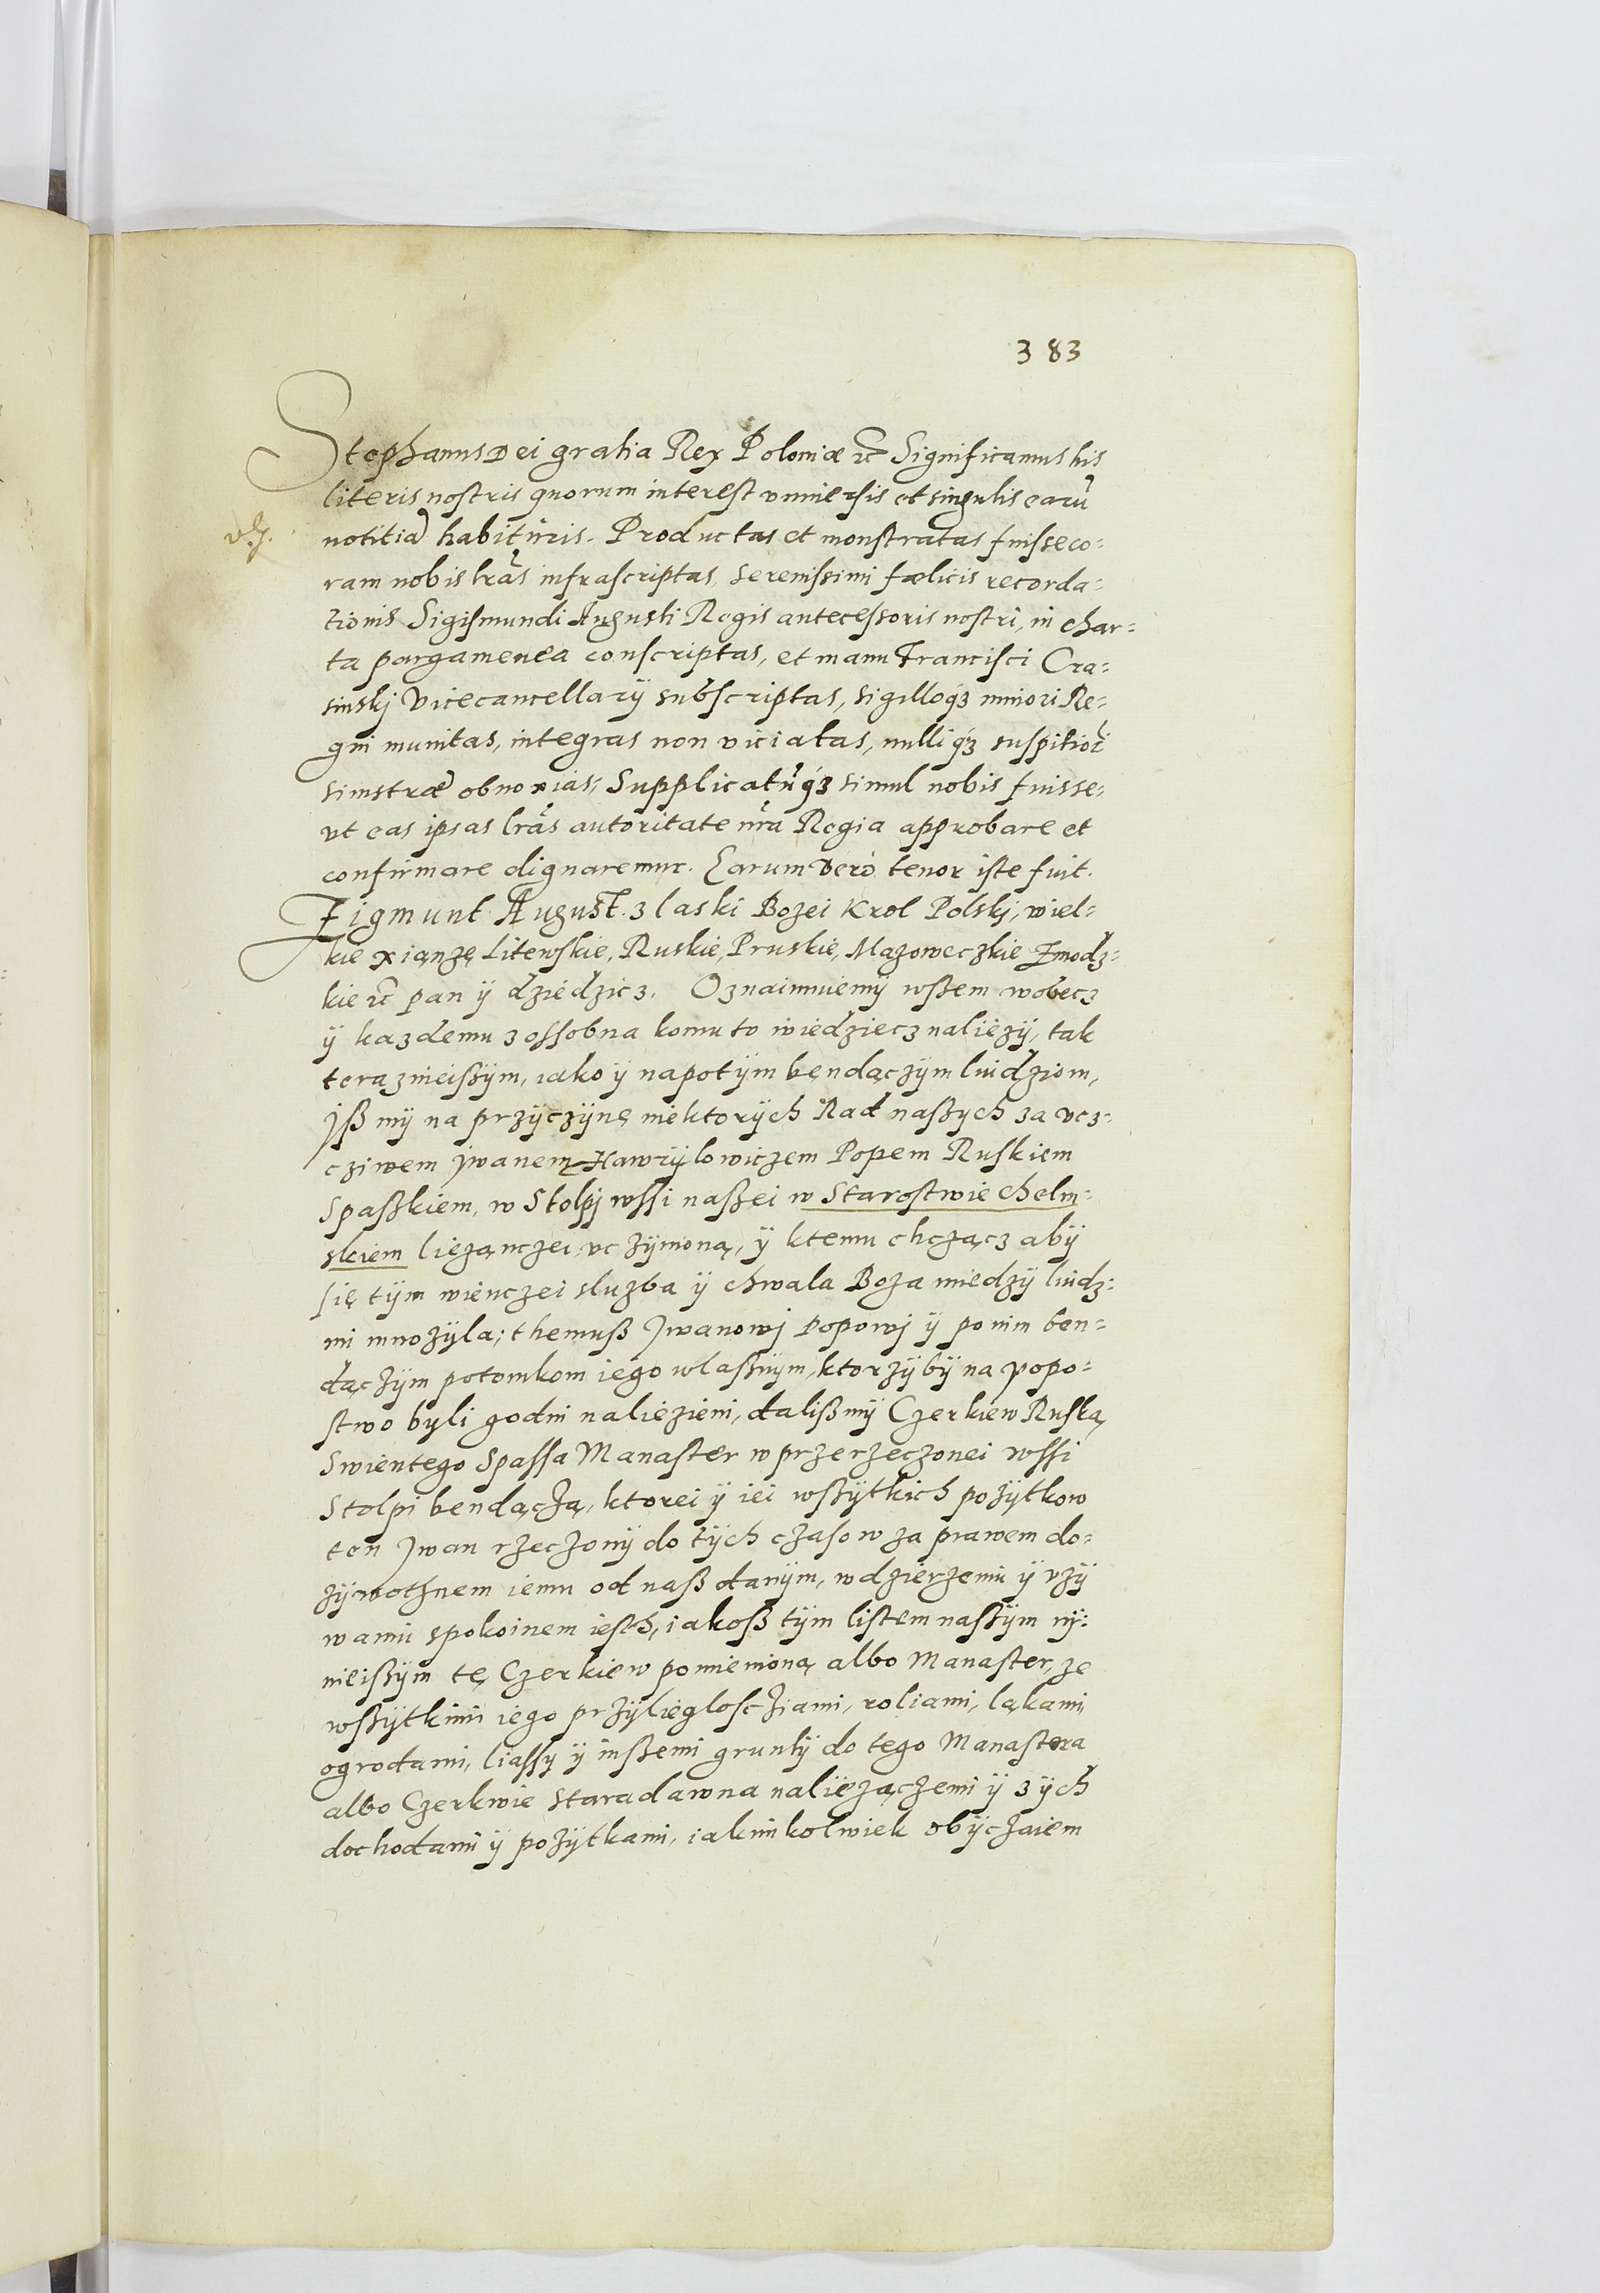 383
Stephanus Dei gratia Rex Poloniæ &c Significamus his
literis nostris quorum interest vniuersis et singulis earũ
notitiã habituris. Productas et monstratas fuisse co-
ram nobis lr̃as infrascriptas serenissimi fœlicis recorda-
tionis Sigismundi Augusti Regis antecessoris nostri, in char-
ta pargamenea conscriptas, et manu Francisci Cra-
sinskj Vicecancellarÿ subscriptas, sigilloq́ꝫ minori Re-
gni munitas, integras non viciatas, nulliq́ꝫ suspitioĩ
sinistræ obnoxias, Supplicatũq́ꝫ simul nobis fuisse,
vt eas ipsas lr̃as autoritate nr̃a Regia approbare et
confirmare dignaremur. Earum Vero tenor iste fuit.
Zigmunt August. z laski Bozei Krol Polskj, wiel-
kie xiąnzę Litewskie, Ruskie, Pruskie, Mazoweczkie Zmodz-
kie &c pan ÿ dziedzicz. Oznaimuiemÿ wßem wobecz
ÿ kazdemu z ossobna komu to wiedziecz naliezÿ, tak
terazneißÿm, iako ÿ napotÿm bęndączÿm liudziom,
Jß mÿ na przÿczÿnę niektorÿch Rad naßÿch za vcz-
cziwem Jwanem Hawrÿlowiczem Popem Ruskiem
Spaßkiem, w Stolpj wssi naßei w Starostwie chelm-
skiem liezącnczei, vczÿnioną, ÿ ktemu chczącz abÿ
się tÿm wienczei sluzba ÿ chwala Boza miedzÿ liudz-
mi mnozÿla; themuß Jwanowj Popowj ÿ po nim ben-
dączÿm potomkom iego wlasznÿm, ktorzÿbÿ na popo-
stwo byli godni naliezieni, dalißmÿ Czerkiew Ruską
Swientego Spassa Manaster w przerzeczonei wssi
Stolpi bendączą, ktorei ÿ iei wßÿtkich pozÿtkow
ten Jwan rzeczonÿ do tÿch czasow za prawem do-
zÿwothnem iemu od naß danÿm, w dzierzeniu ÿ vzÿ
waniu spokoinem iesth, iakoß tÿm listem naßÿm nÿ-
nieißÿm tę Czerkiew pomienioną albo Manaster, ze
wßÿtkimi iego przÿlieglosciami, roliami, ląkami,
ogrodami, liassy ÿ inßemi gruntÿ do tego Manastera
albo Czerkwie staradawna naliezączemi ÿ z ÿch
dochodami ÿ pozÿtkami, iakimkolwiek obÿczaiem